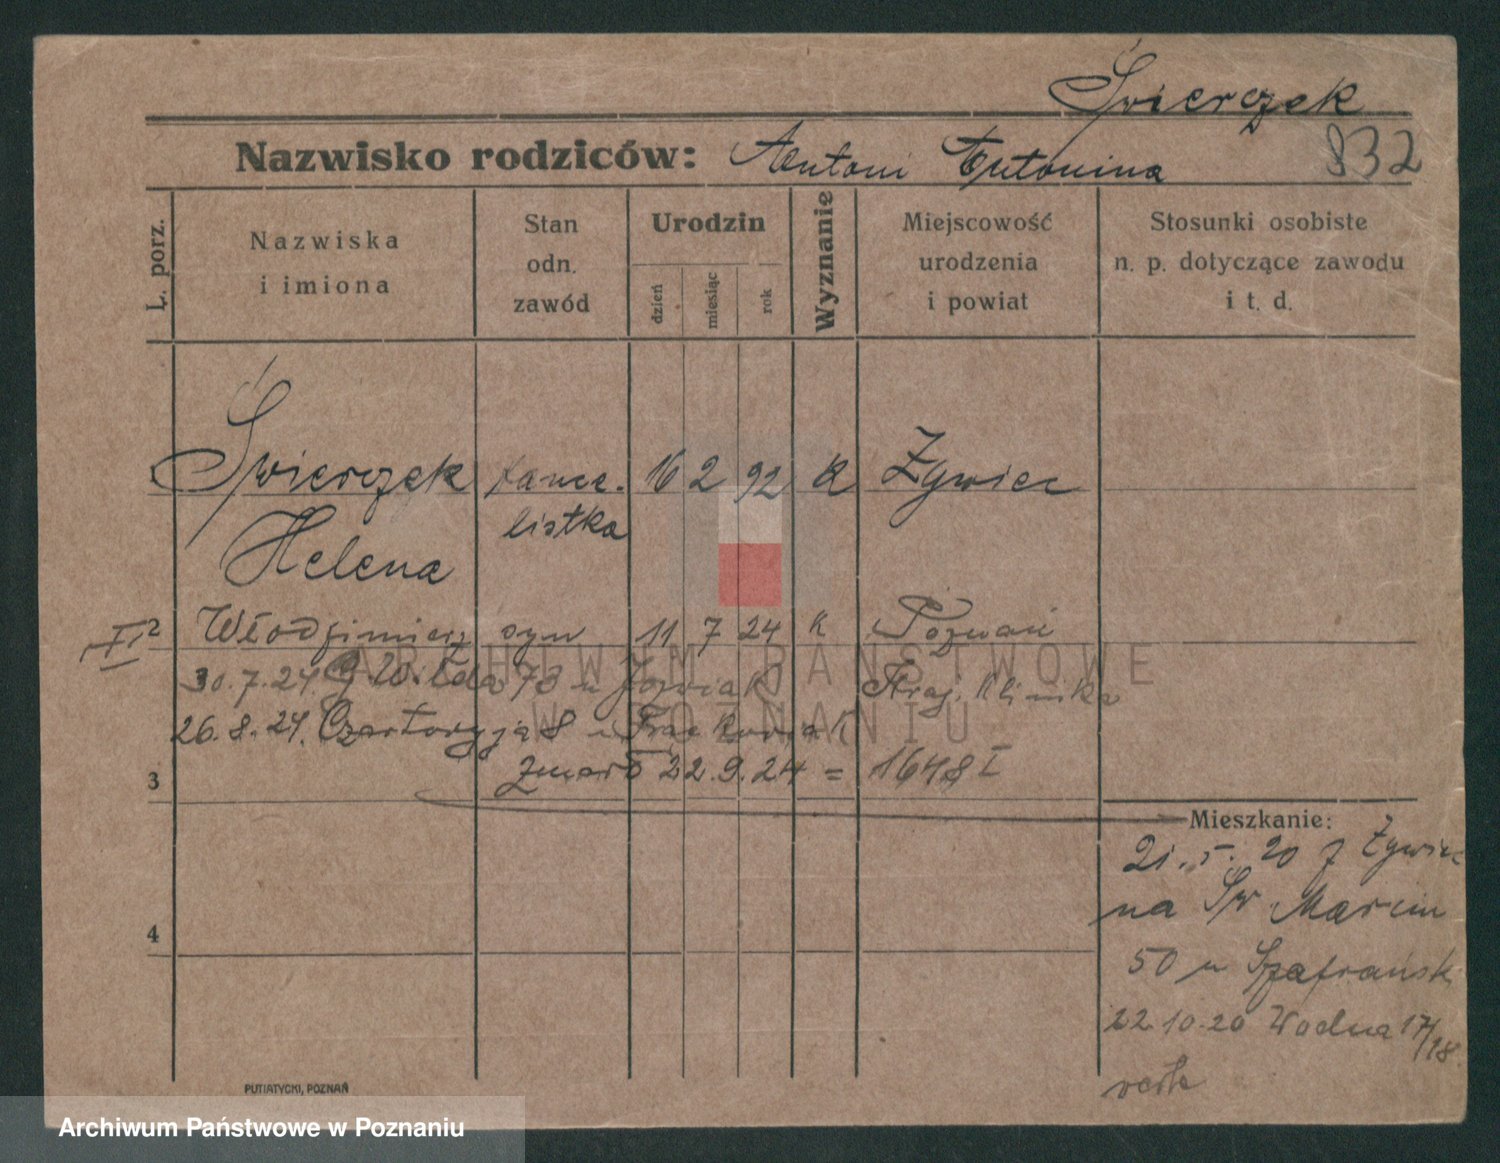 Świerczek
Nazwisko rodziców: Antoni Antonina 832
L. porz.
Nazwiska
i imiona
Stan
odn.
zawód
Urodzin
dzień
miesiąc
rok
Wyznanie
Miejscowość
urodzenia
i powiat
Stosunki osobiste
n. p. dotyczące zawodu
i t. d.
Świerczek kance- 16 2 92 k Żywiec
listka
Helena
2 Włodzimierz syn 11 7 24 k Poznań
30.7.24. 73 u Klinika
26.8.24. 8 u
3 zmarł 22.9.24 = 1648 I
Mieszkanie:
21.5.20 z Żywiec
na Św Marcin
4
50 u Szafrański
22.10.20 Wodna 17/18
PUTIATYCKI, POZNAŃ
ARCHIWUM PAŃSTWOWE
W POZNANIU
Archiwum Państwowe w Poznaniu